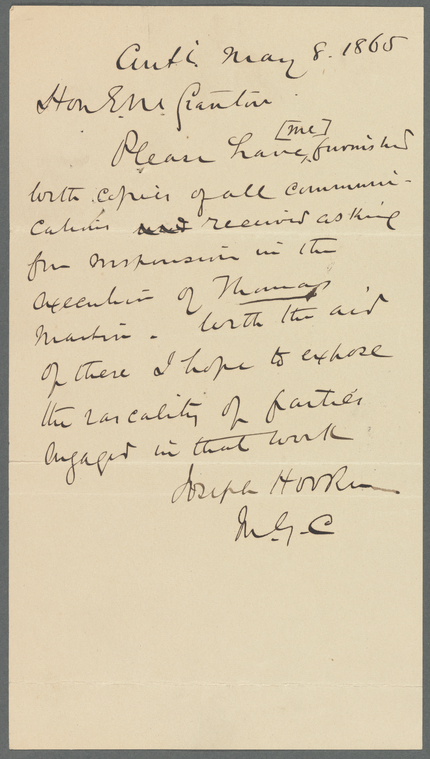 Cinti May 8. 1865
Hon E. M. Stanton
[me]
Please have, furnished
with copies of all communi-
cations and received asking
for suspension in the
execution of Thomas
Martin. With the aid
of these I hope to expose
the rascality of parties
engaged in that work
Joseph Hooker
M. G. C